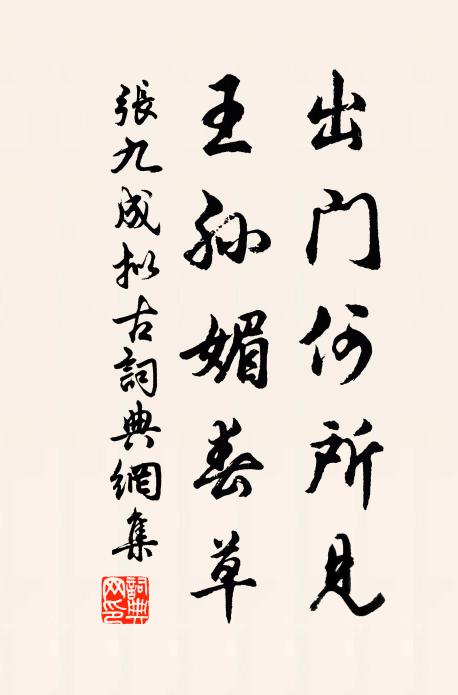 出门何所见
王孙媚春草
張九成拟古詞典網集
詞典网印